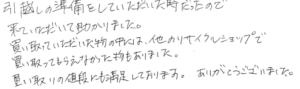 引越しの準備をしていただいた時だったので
来ていただいて助かりました。
買い取っていただいた物の中には、他のリサイクルショップで
買い取ってもらえなかった物もありました。
買い取りの値段にも満足しております。ありがとうございました。